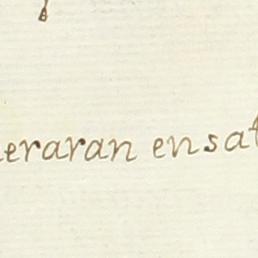 eraran en sat